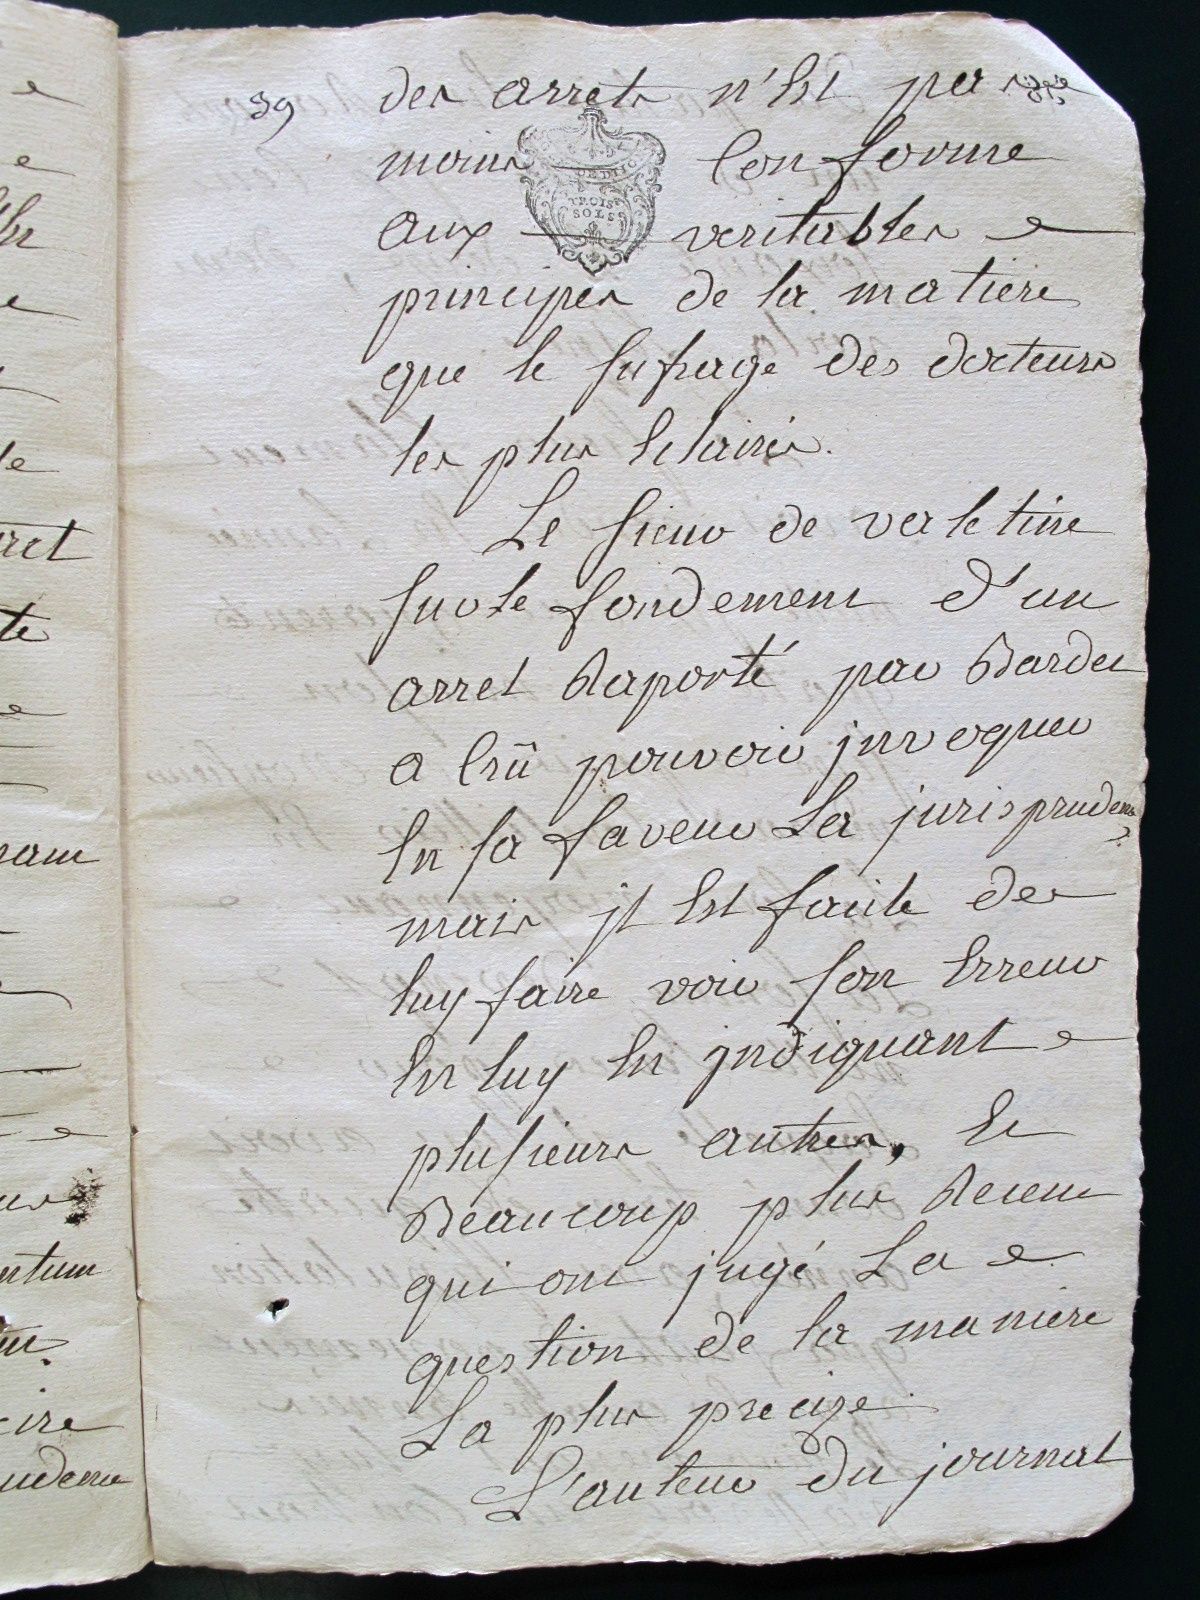 39
des arrets n'Est pas
moins conforme
aux veritables
principes de la matiere
que le sufrage des docteurs
les plus Eclairés.
Le sieur de valetine
sur le fondement d'un
arret Raporté par Bardet
a Crû pouvoir jnvoquer
En sa faveur La jurisprudence
mais jl Est facile de
luy faire voir son Erreur
En luy En jndiquant
plusieurs autres, Et
Beaucoup plus Recens
qui ont jugé La
question de la maniere
La plus precize.
L'auteur du journal
TROIS
SOLS
ret
te
ntum
ire